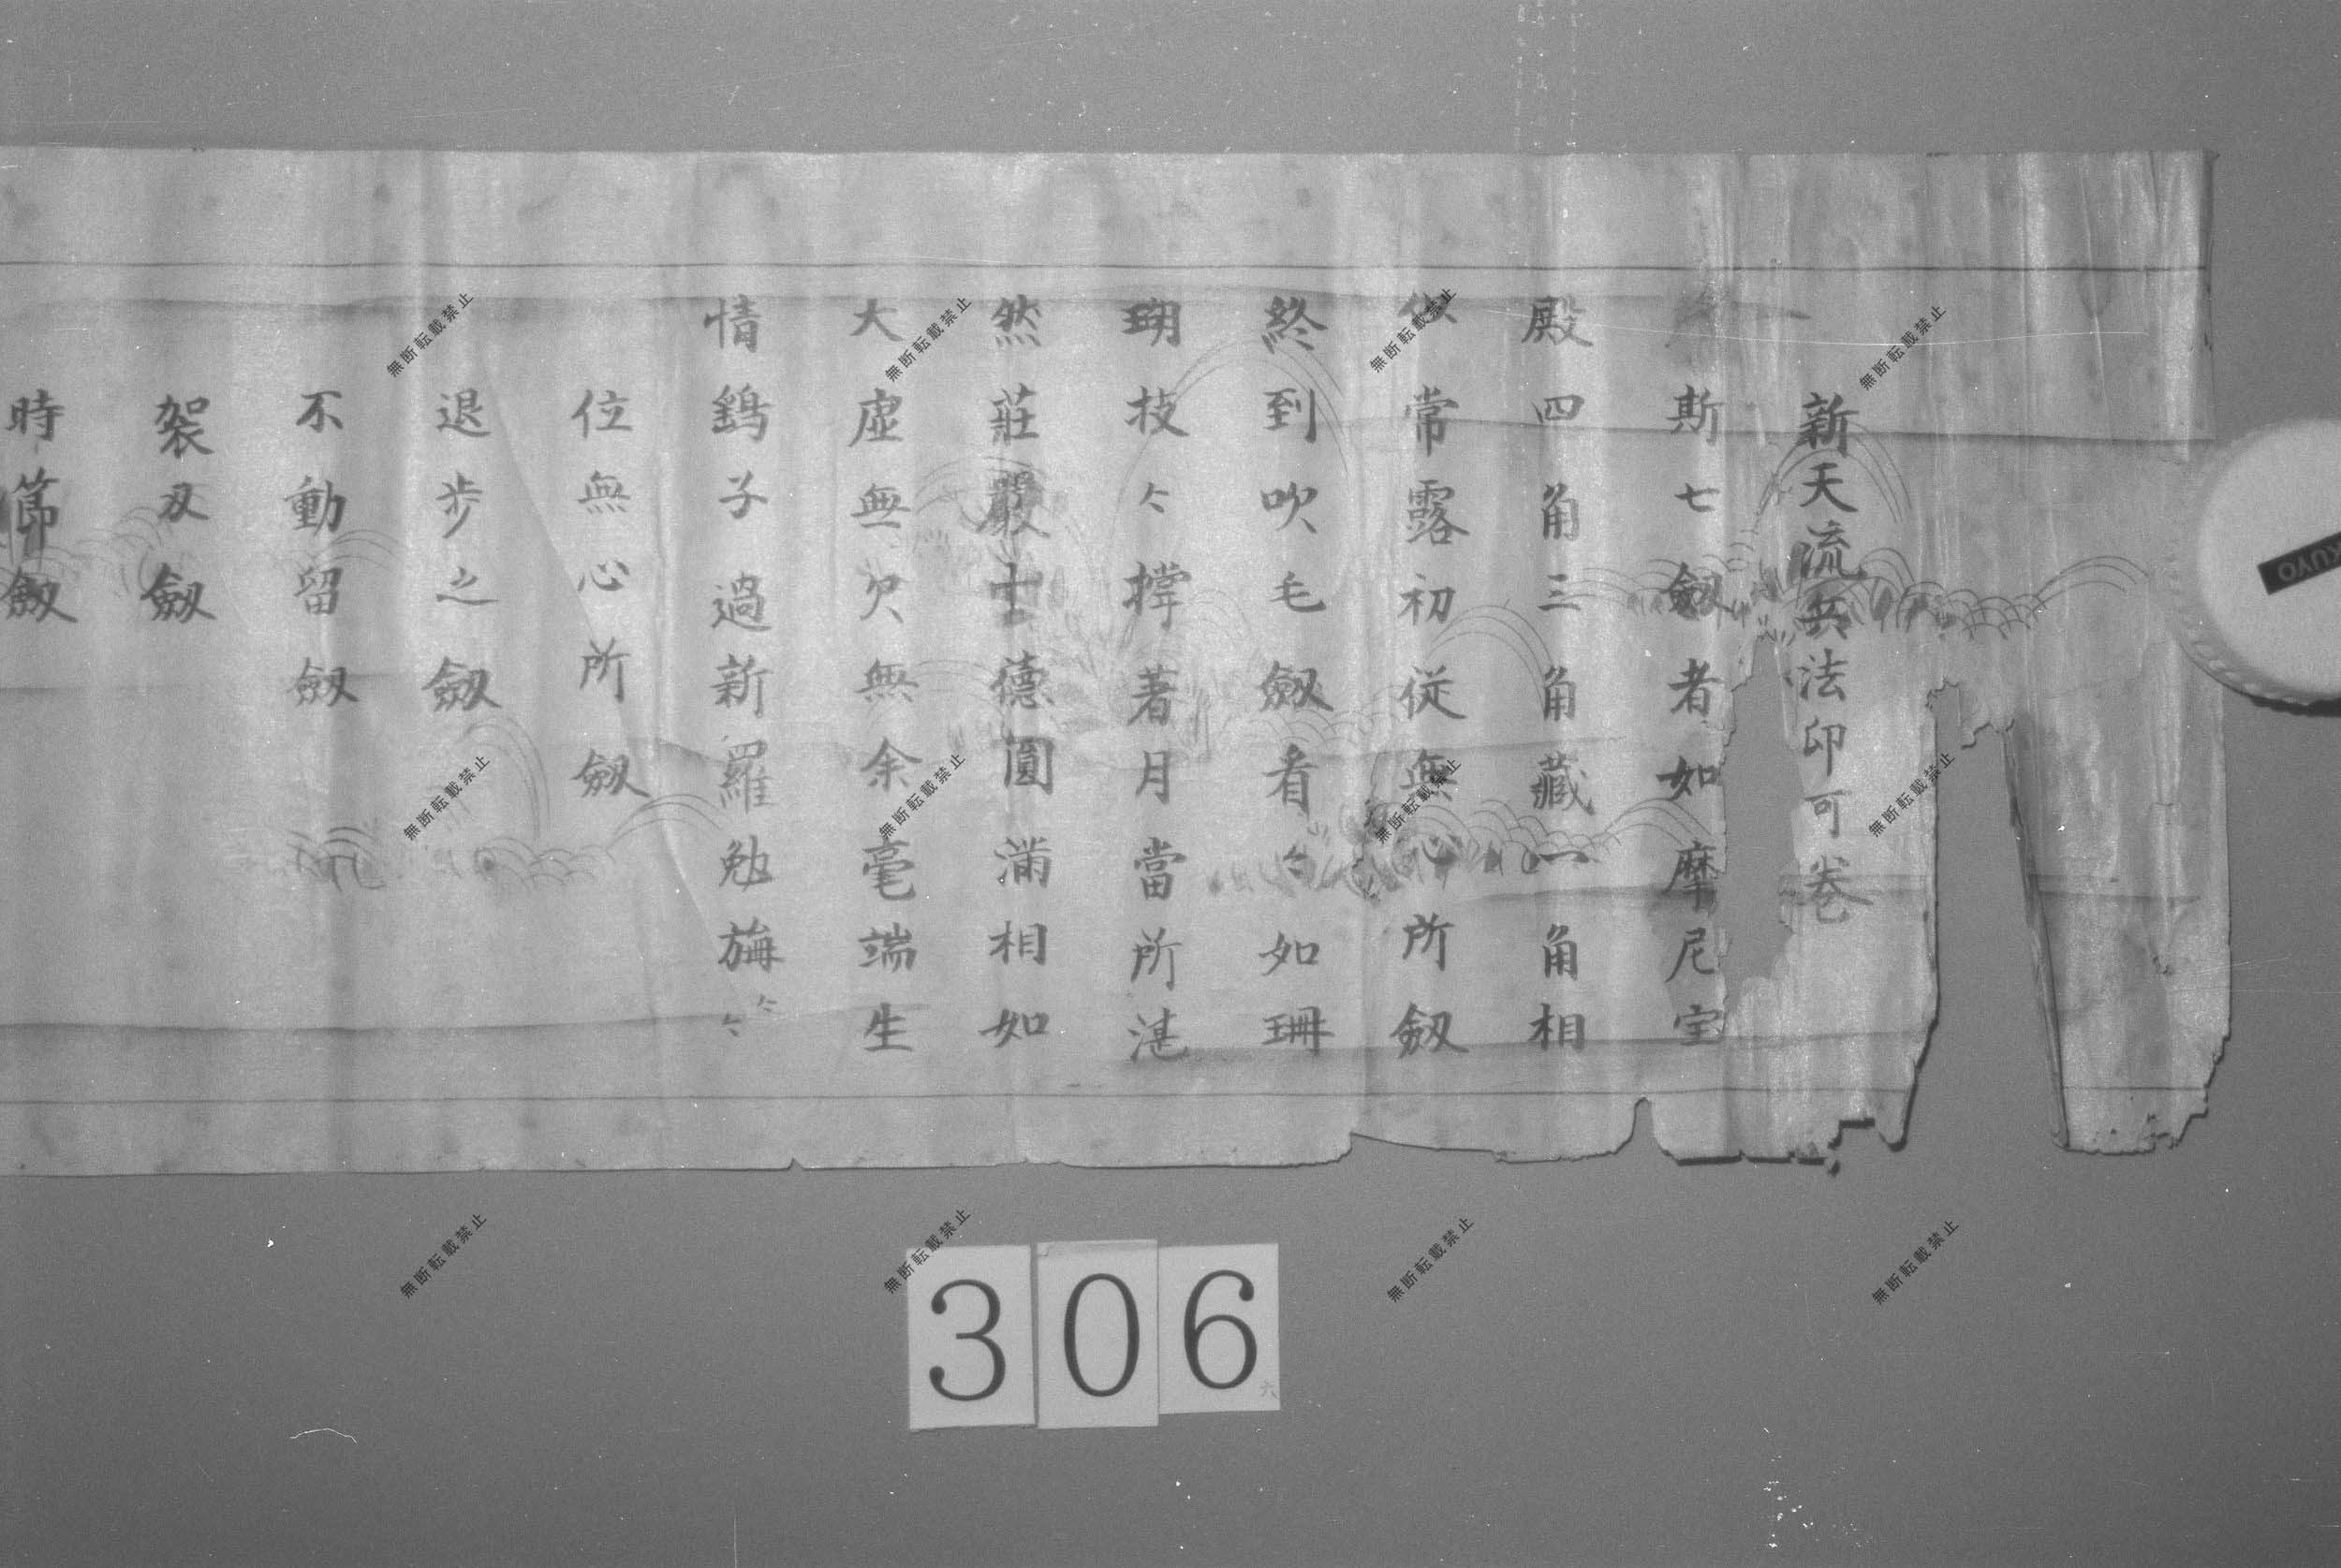 新天流兵法印可卷
斯七劔者如摩尼宝
殿四角三角藏一角相
似常露初従無心所劔
終到吹毛劔看々如珊
瑚枝々撑著月當所湛
然莊嚴士德圓滿相如
大虛無欠無余毫端生
情鷂子過新羅勉旃々々
位無心所劔
退步之劔
不動留劔
袈刄劔
時節劔
306
六
KUYO
無断転載禁止
無断転載禁止
無断転載禁止
無断転載禁止
無断転載禁止
無断転載禁止
無断転載禁止
無断転載禁止
無断転載禁止
無断転載禁止
無断転載禁止
無断転載禁止